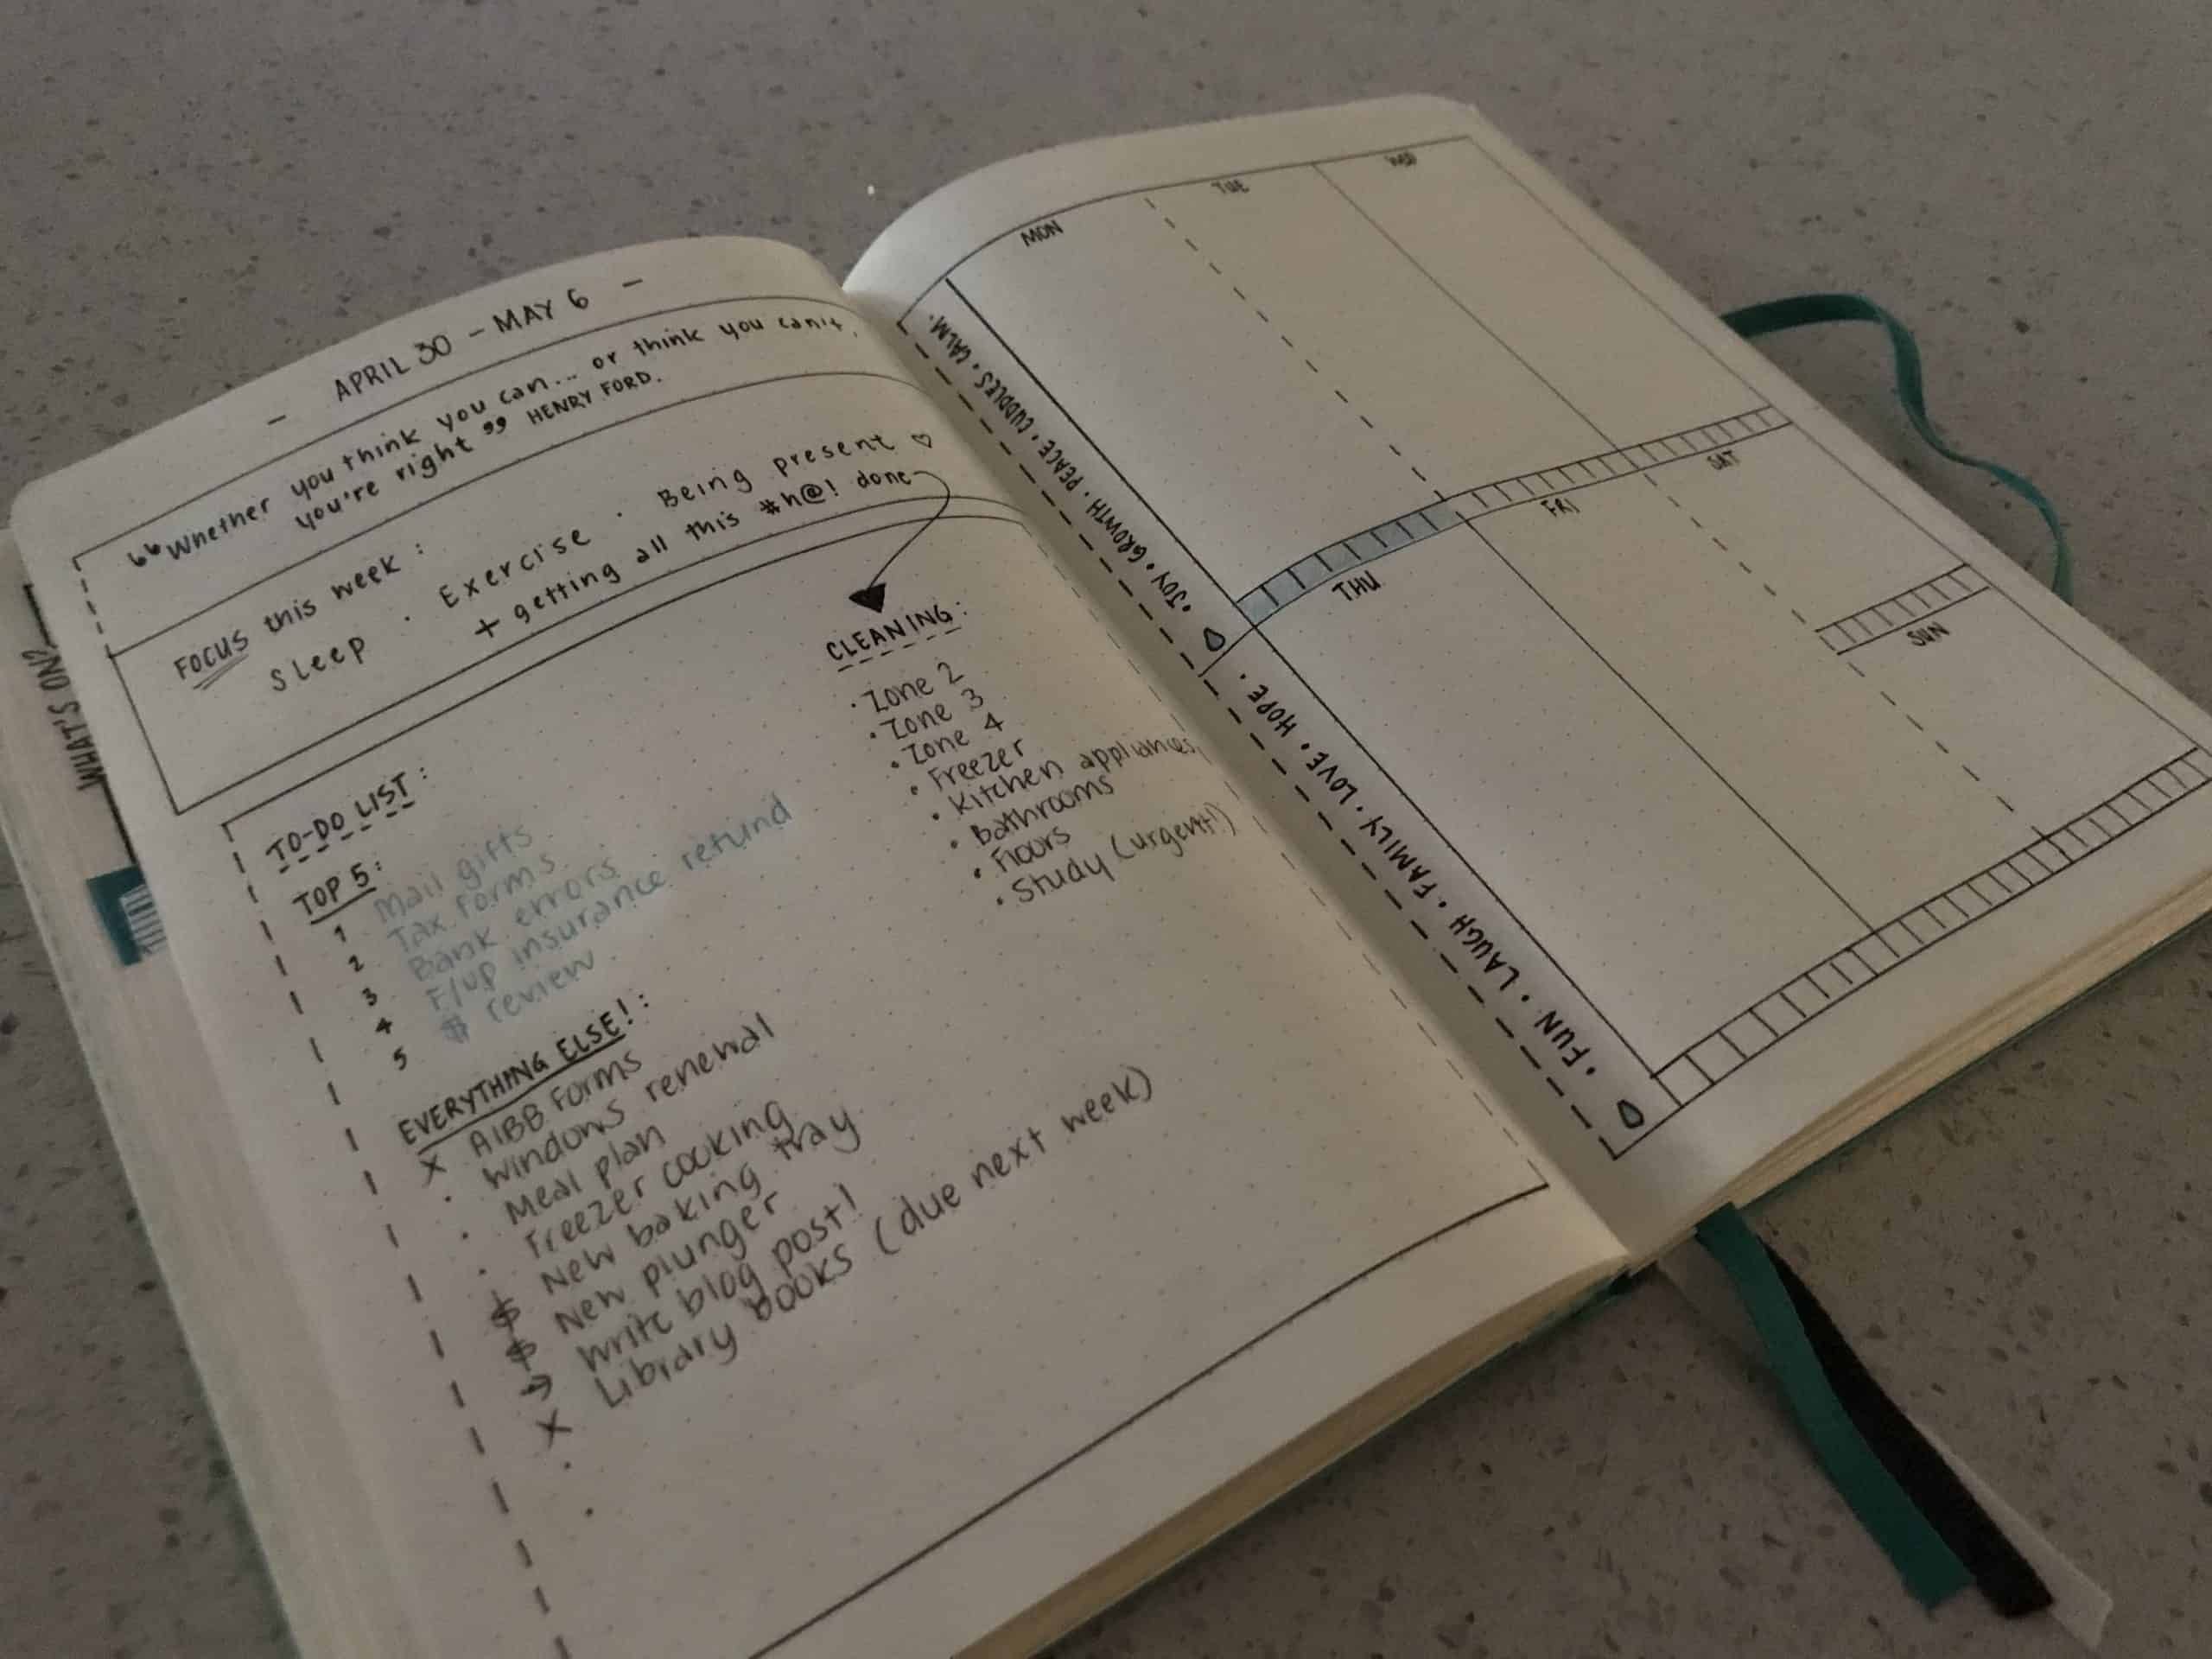 - APRIL 30 - MAY 6 -
“Whether you think you can... or think you can't,
you're right” HENRY FORD.
FOCUS this week:
Sleep · Exercise · Being present ♡
+ getting all this #h@! done
TO-DO LIST:
TOP 5:
1 Mail gifts
2 Tax forms
3 Bank errors
4 F/up insurance refund
5 $ review
EVERYTHING ELSE!:
x AIBB Forms
· Windows renewal
· Meal plan
· Freezer cooking
$ New baking tray
$ New plunger
→ Write blog post!
x Library books (due next week)
CLEANING:
· Zone 2
· Zone 3
· Zone 4
· Freezer
· Kitchen appliances
· Bathrooms
· Floors
· Study (urgent!)
WHAT'S ON?
MON
TUE
WED
THU
FRI
SAT
SUN
· JOY · GROWTH · PEACE · CUDDLES · CALM ·
· FUN · LAUGH · FAMILY · LOVE · HOPE ·